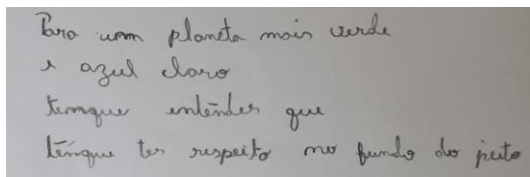 Para um planeta mais verde
e azul claro
temque entênder que
têmque ter respeito no fundo do peito